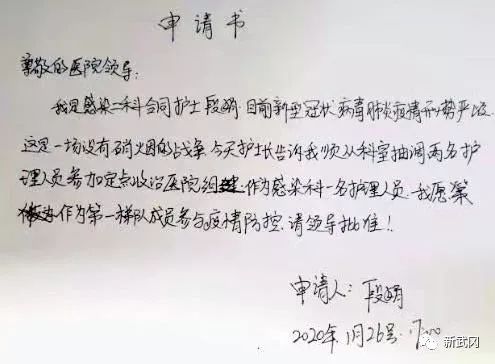 申请书
尊敬的医院领导:
我是感染二科合同护士段娟.目前新型冠状病毒肺炎疫情形势严峻.
这是一场没有硝烟的战争.今天护士长告诉我们须从科室抽调两名护
理人员参加定点收治医院组建.作为感染科一名护理人员.我愿第
作为第一梯队成员参与疫情防控.请领导批准!
申请人:段娟
2020年.1月26号.17:00
新武冈